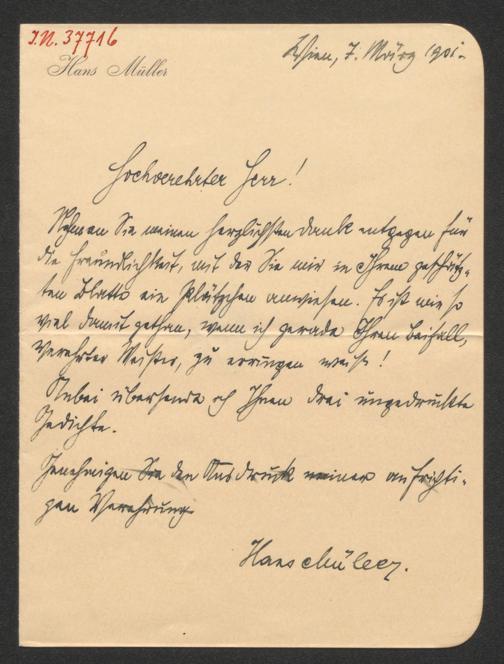 I.N. 37716
Hans Müller
Wien, 7. März 1901.
Hochverehrter Herr!
Nehmen Sie meinen herzlichsten Dank entgegen für
die Freundlichkeit, mit der Sie mir in Ihrem geschätz-
ten Blatte ein Plätzchen anwiesen. Es ist mir so
viel damit gethan, wenn ich gerade Ihren Beifall,
verehrter Meister, zu erringen weiß!
Anbei übersende ich Ihnen drei ungedruckte
Gedichte.
Genehmigen Sie den Ausdruck meiner aufrichti-
gen Verehrung
Hans Müller.